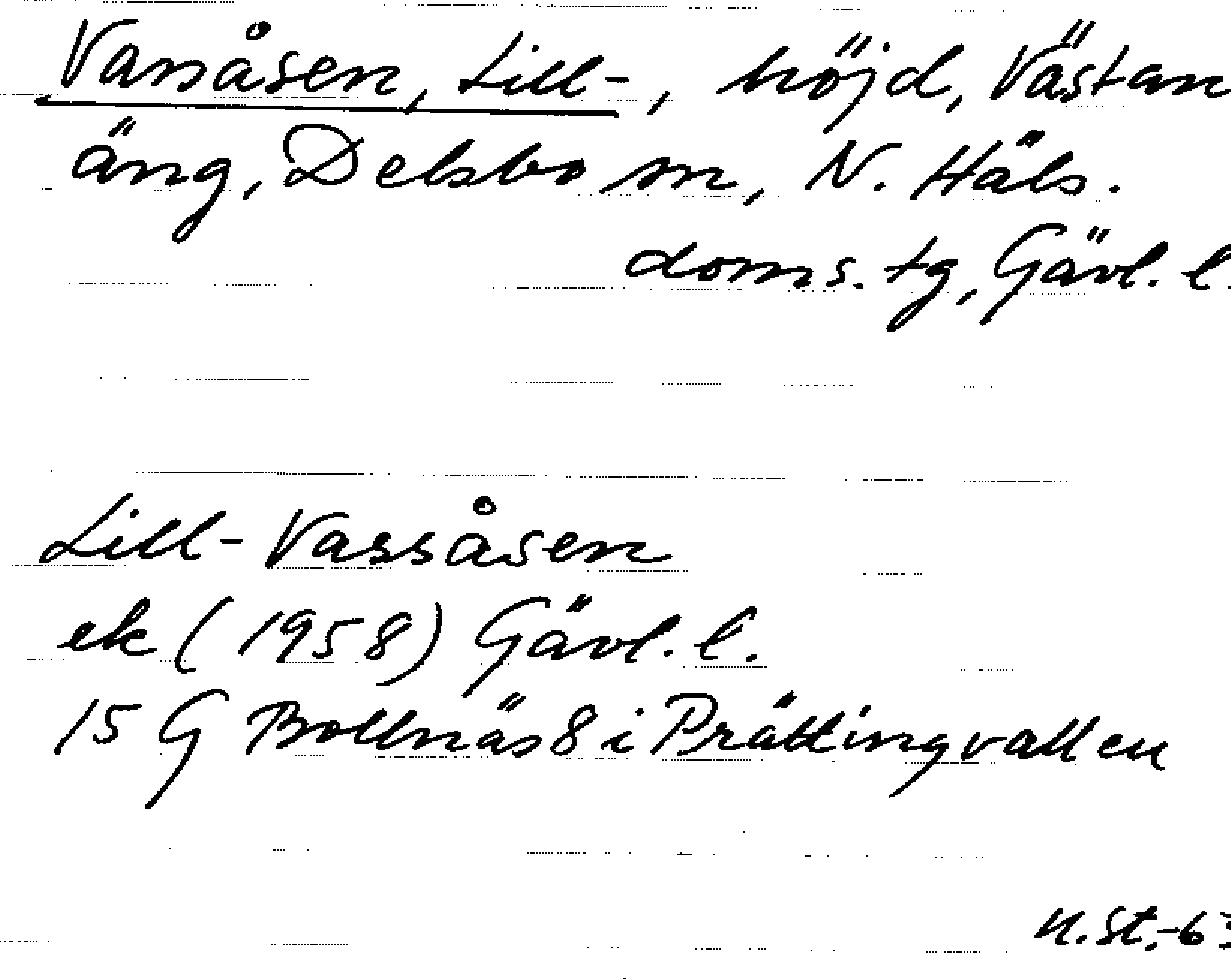 Vassåsen, Lill-, höjd, Västan
äng, Delsbo sn, N. Häls.
doms. tg, Gävl. l.
Lill-Vassåsen
ek (1958) Gävl. l.
15 G Bollnäs 8 i Prästingvallen
N.St.-63